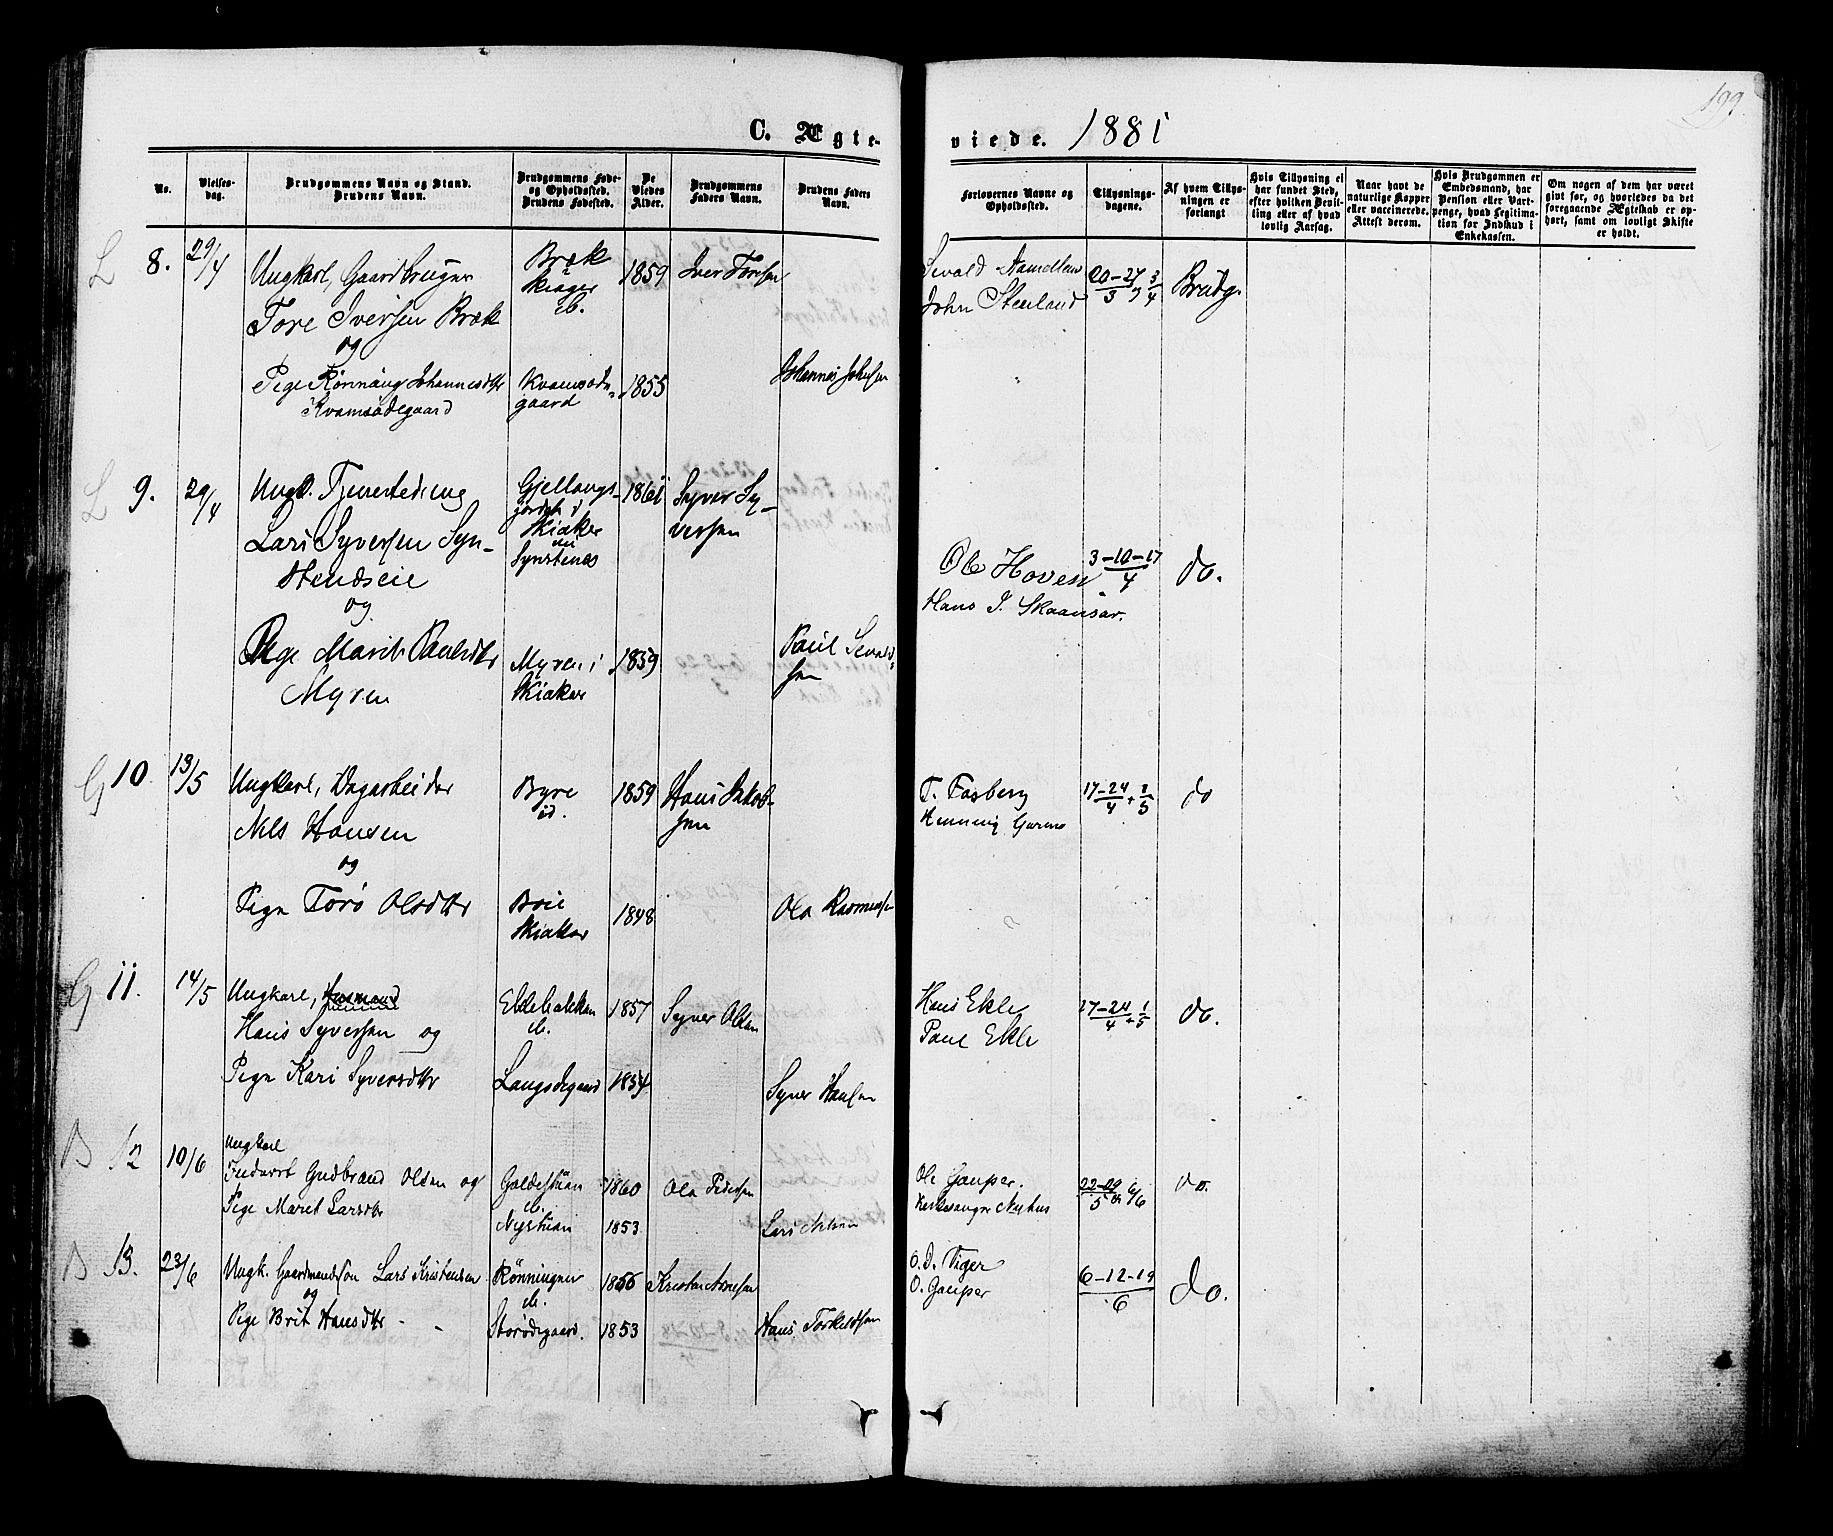 199.
C. Ægte-
viede. 1881
No.
Vielses-
dag.
Brudgommens Navn og Stand.
Brudens Navn.
Brudgommens Føde-
og Opholdssted.
Brudens Fødested.
De
Viedes
Alder.
Brudgommens
Faders Navn.
Brudens Faders
Navn.
Forlovernes Navne og
Opholdssted.
Tillysnings-
dagene.
Af hvem Tillys-
ningen er
forlangt
Hvis Tillysning ei
har fundet Sted,
efter hvilken Bevil-
ling eller af hvad
lovlig Aarsag.
Naar havt de
naturlige Kopper
eller vaccinerede.
Attest derom.
Hvis Brudgommen er
Embedsmand, har
Pension eller Vart-
penge, hvad Legitima-
tion for Indskud i
Enkekassen.
Om nogen af dem har været
givt før, og hvorledes da det
foregaaende Ægteskab er op-
hørt, samt om lovligt Skifte
er holdt.
L 8. 29/4
Ungkarl, Gaardbruger
Tore Iversen Bræk
og
Pige Rønnaug Johannesdtr
Kvamsødegaard
Bræk
Skiager
ib.
Kvamsøde-
gaard
1859
1855
Iver Toresen
Johannes Johnsen
Sevald
John Steenland
20-27/3 3/4
Brudg.
L 9. 29/4
Ungk. Tjenestedreng
Lars Syversen Syn-
stendseie
og
Pige Marit Paulsdtr
Myren
Gjellangs-
jordet i
Skiaker
nu
Synstenes
Myren i
Skiaker
1861
1859
Syver Sy-
versen
Paul Sevald-
sen
Ole Hoven
Hans J. Skaansar.
3-10-17/4
do.
G 10. 13/5
Ungkarl, Dagarbeider
Nels Hansen
og
Pige Torø Olsdtr
Byre
id.
Boie
Skiaker
1859
1848
Hans Jakob-
sen
Ola Rasmussen
T. Fosberg
Henning Garmo
17-24/4 + 1/5
do
G 11. 14/5
Ungkarl, Husmand
Hans Syversen og
Pige Kari Syversdtr
Eklebakken
ib.
Langødegaard
1857
1854
Syver Olsen
Syver Hansen
Hans Ekle
Paul Ekle
17-24/4 + 1/5
do.
B 12 10/6
Ungkarl
Inderst Gudbrand Olsen og
Pige Maret Larsdtr
Galdestuan
ib.
Nystuan
1860
1853
Ola Pedersen
Lars Nelsen
Ole Gaupar.
Kirkesanger Nyhus
22-29/5 6/6
do.
B 13. 23/6
Ungk. Gaardmandssøn Lars Kristensen
og
Pige Brit Hansdtr - -
Rønningen
ib.
Storødegaard.
1856
1853
Kristen Arnesen
Hans Torkildsen
O. D. Tiger
O. Gauper
6-12-19/6
do.